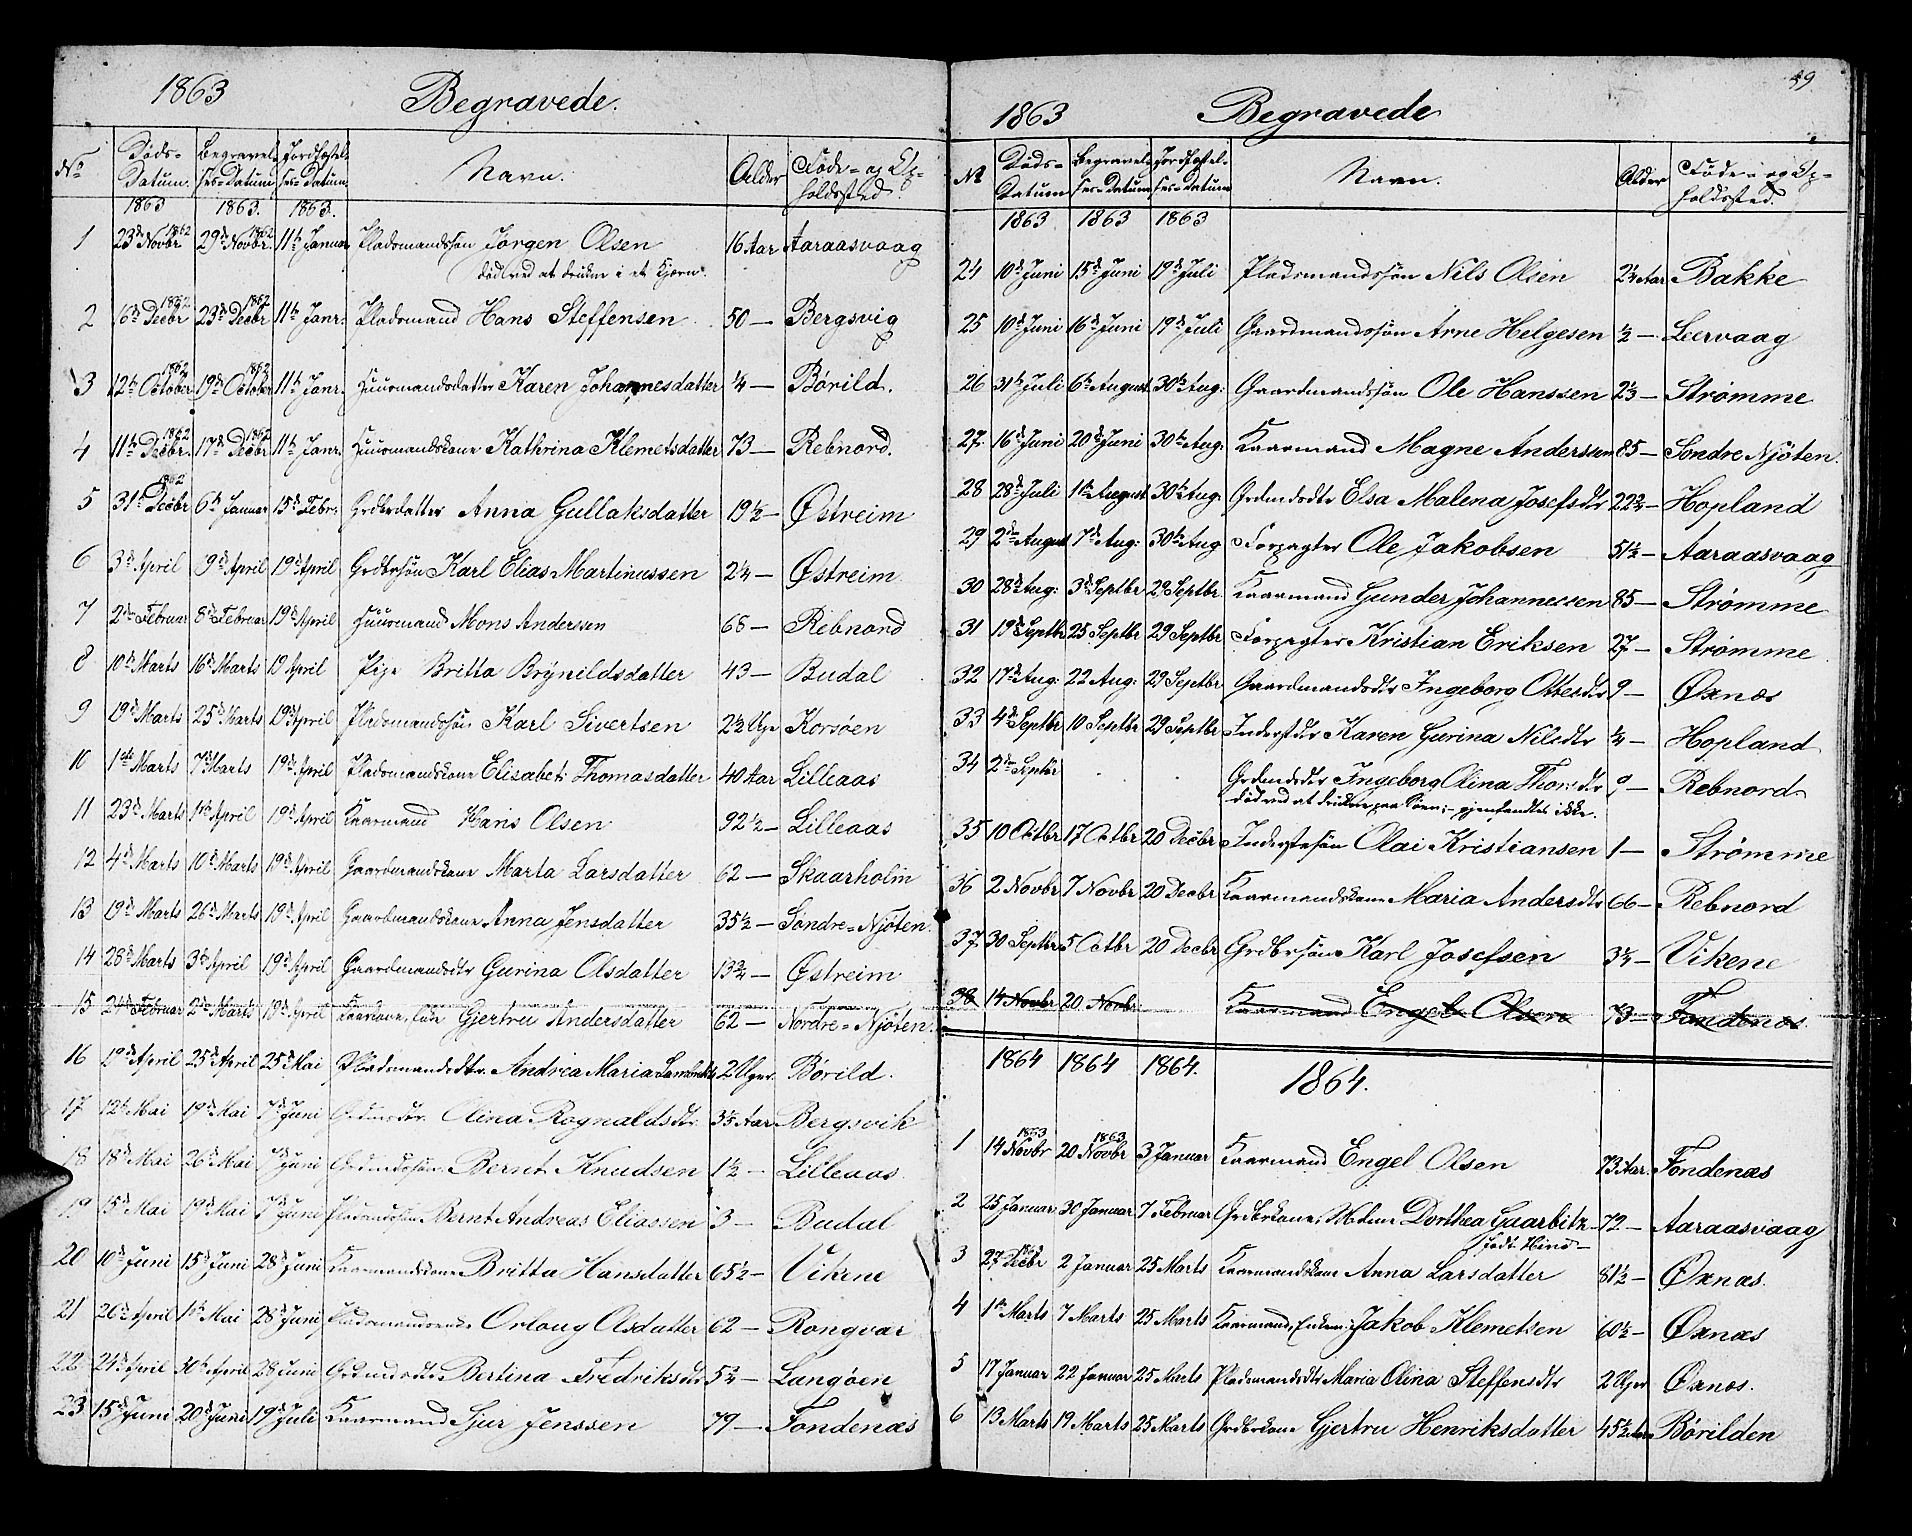 1863 Begravede.
No Døds-Datum. Begravelses-Datum Jordfæstelses-Datum Navn. Alder Føde- og Opholdssted.
1863 1863. 1863.
1 23de Novbr 1862 29de Novbr. 1862 11te Januar Pladsmandssøn Jørgen Olsen 16 Aar Aaraasvaag
død ved at drukne i et Kjærn.
2 6te Decbr 1862 23de Decbr 1862 11te Janr. Pladsmand Hans Steffensen 50 — Bergsvig
3 12te October 1862 19de October 1862 11te Janr. Huusmandsdatter Karen Johannesdatter ¼ — Børild.
4 11te Decbr. 1862 17de Decbr 1862 11te Janr. Huusmandskone Kathrina Klemetsdatter 73 — Rebnord.
5 31te Decbr 1862 6te Januar 15de Febr. Grdbrdatter Anna Gullaksdatter 19½ — Østreim
6 3die April 9de April 19de April Grdbrsøn Karl Elias Martinussen 2¼ — Østreim
7 2den Februar 8de Februar 19de April Huusmand Mons Anderssen 68 — Rebnord
8 10de Marts 16de Marts 19 April Pige Britta Brÿnildsdatter 43 — Budal
9 19de Marts 25de Marts 19de April Pladsmandssøn Karl Sivertsen 2½ Uge Korsøen
10 1ste Marts 7de Marts 19de April Pladsmandskone Elisabet Thomasdatter 40 Aar Lilleaas
11 23de Marts 1ste April 19de April Kaarmand Hans Olsen 92½ — Lilleaas
12 4de Marts 10de Marts 19de April Gaardmandskone Marta Larsdatter 62 — Skaarholm
13 19de Marts 26de Marts 19de April Gaardmandskone Anna Jensdatter 35½ — Søndre-Njöten.
14 28de Marts 3die April 19de April Gaardmandsdtr Gurina Olsdatter 13¾ — Østreim
15 24de Februar 2den Marts 19de April Kaarkone, Gjertru Andersdatter 62 — Nordre-Njöten.
16 19de April 25de April 25de Mai Pladsmandsdtr. Andrea Maria Lambrektsd 2 Uger. Børild.
17 12te Mai 19de Mai 7de Juni Grdmsdtr. Olina Rognaldsdtr 3½ Aar Bergsvik
18 18de Mai 26de Mai 7de Juni Grdmdssøn Bernt Knudsen 1½ — Lilleaas.
19 15de Mai 19de Mai 7de Juni Pladsmdssøn Bernt Andreas Eliassen 3 — Budal
20 10de Juni 15de Juni 28de Juni Kaarmandskone Britta Hansdatter 65½ — Vikene
21 26de April 1ste Mai 28de Juni Pladsmandsenke Orloug Olsdatter 62 — Rongvar
22 24de April 30te April 28 Juni Grdmdsdtr Bertina Fredriksdtr 5¾ — Langøen
23 15de Juni 20de Juni 19de Juli Kaarmand Sjur Jenssen 79 — Fondenæs
49
1863 Begravede
No Døds-Datum Begravelses-Datum Jordfæstelses-Datum Navn. Alder Føde- og Opholdssted.
1863 1863 1863
24 10de Juni 15de Juni 19de Juli Pladsmandssøn Nils Olsen 2¼ Aar Bakke
25 10de Juni 16de Juni 19de Juli Gaardmandssøn Arne Helgesen ½ — Leervaag
26 31te Juli 6te August 30te Aug: Gaardmandssøn Ole Hanssen 2½ — Strømme
27. 16de Juni 20de Juni 30te Aug: Kaarmand Magne Anderssen 85 — Søndre Njöten.
28 28de Juli 1ste August 30te Aug: Grdmdsdtr Elsa Malena Josefsdtr 22¾ — Hopland
29 2den August 7de Aug: 30te Aug Forpagter Ole Jakobsen 51½ — Aaraasvaag
30 28de Aug: 3die Septbr 29 Septbr Kaarmand Gunder Johannessen 85 — Strømme
31 19de Septbr 25 Septbr 29 Septbr Forpagter Kristian Eriksen 27 — Strømme
32 17de Aug: 22 Aug: 29 Septbr Gaardmandsdtr Ingeborg Ottesdtr 9 — Øxnæs
33 4de Septbr 10 Septbr 29 Septbr Inderstdtr Karen Gurina Nilsdtr ¼ — Hopland
34 2den Septbr Grdmdsdtr Ingeborg Olina Thorsdtr 9 — Rebnord
død ved at drukne paa Søen; gjenfandtes ikke.
35 10 Octbr 17 Octbr 20 Decbr Inderstsøn Olai Kristiansen 1 — Strømme
36 2 Novbr 7 Novbr 20 Decbr Kaarmandskone Maria Andersdtr 66 — Rebnord
37. 30 Septbr 5 Octbr 20 Decbr Grdbrsøn Karl Josefsen 3¼ — Vikene
38 14 Novbr 20 Novbr Kaarmand Engel Olsen 73 — Fondenæs.
1864 1864 1864. 1864.
1 14 Novbr 1863 20 Novbr 1863 3 Januar Kaarmand Engel Olsen 73 Aar. Fondenæs
2 25 Januar 30 Januar 7 Februar Grdbrkone, Mdme Dorthea Gaarbitz 72 — Aaraasvaag
født
3 27 Decbr 1863 2 Januar 25 Marts Kaarmandskone Anna Larsdatter 81½ — Øxnæs.
4 1ste Marts 7 Marts 25 Marts Kaarmand, Enkem: Jakob Klemetsen 60½ — Øxnæs
5 17 Januar 22 Januar 25 Marts Pladsmandsdtr Maria Olina Steffensdtr 2 Uger Øxnæs.
6 13 Marts 19 Marts 25 Marts Grdbrkone Gjertru Henriksdatter 45½ Aar Børilden